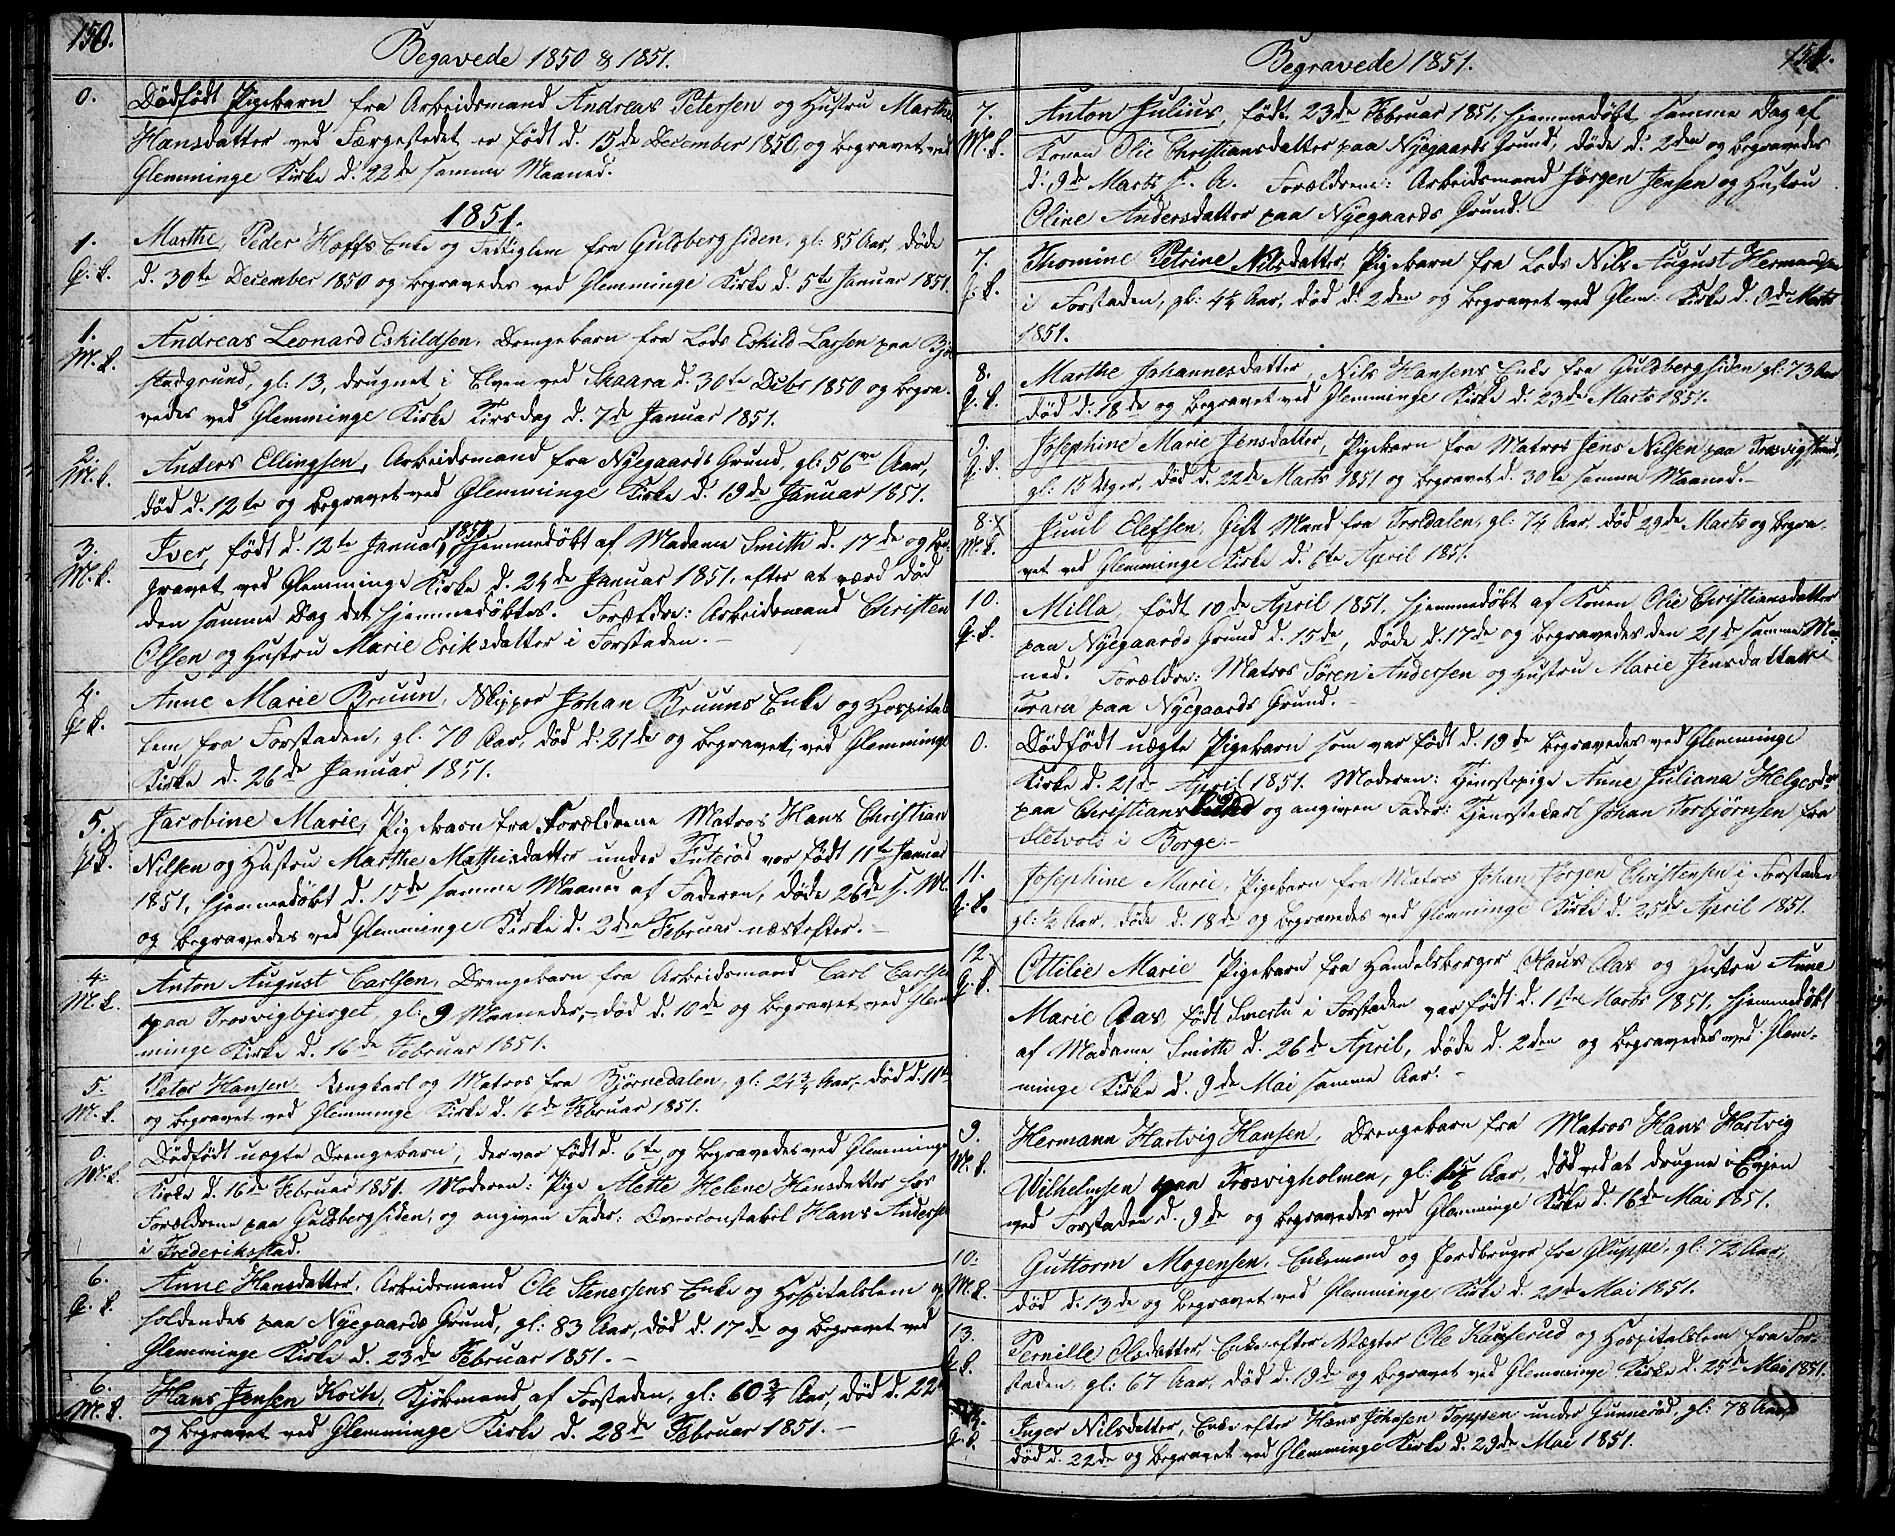 150.
Begavede 1850 & 1851.
0. Dödfödt Pigebarn fra Arbeidsmand Andreas Petersen og Hustru Marthe
Hansdatter ved Færgestedet er født d. 15de December 1850, og begravet ved
Glemminge Kirke d. 22de samme Maaned.
1851.
1. Marthe, Peder Hoffs Enke og Fattiglem fra Guldbergsiden, gl: 85 Aar, döde
Q. K. d. 30te December 1850 og begravedes ved Glemminge Kirke d. 5te Januar 1851.
1. Andreas Leonard Eskildsen, Drengebarn fra Lods Eskild Larsen paa
M. K. stadgrund, gl: 13, drugnet i Elven ved Skaara d. 30te Decbr 1850 og begra-
vedes ved Glemminge Kirke Tirsdag d. 7de Januar 1851.
2. Anders Ellingsen, Arbeidsmand fra Nyegaards Grund, gl: 56 Aar,
M. K. död d. 12te og begravet ved Glemminge Kirke d. 19de Januar 1851.
3. Iver, födt d. 12te Januar 1851, hjemmedöbt af Madame Smith d. 17de og be-
M. K. gravet ved Glemminge Kirke d. 24de Januar 1851, efter at værd död
den samme Dag det hjemmedöbtes. Forældre: Arbeidsmand Christen
Olsen og Hustru Marie Eriksdatter i Forstaden.
4. Anne Marie Bruun, Skipper Johan Bruuns Enke og Hospitals
Q K. lem fra Forstaden, gl. 70 Aar, död d. 21de og begravet ved Glemminge
Kirke d. 26de Januar 1851.
5. Jacobine Marie, Pigebarn fra Forældrene Matros Hans Christian
Q. K. Nilsen og Hustru Marthe Mathisdatter under Guterød var födt 11te Januar
1851, hjemmedöbt d. 15de samme Maaned af Faderen, döde 26de s. M.
og begravedes ved Glemminge Kirke d. 2den Februar næstefter.
4. Anton August Carlsen, Drengebarn fra Arbeidsmand Carl Carlsen
M. K. paa Trosvigbjerget, gl: 9 Maaneder, död d. 10de og begravet ved Glem
minge Kirke d. 16de Februar 1851.
5. Peter Hansen, Ungkarl og Matros fra Bjørnedalen, gl: 24 3/4 Aar, död d. 11te
M. K. og begravet ved Glemminge Kirke d. 16de Februar 1851.
0. Dödfödt uægte Drengebarn, der var födt d. 6te og begravedes ved Glemminge
M. K. Kirke d. 16de Februar 1851. Moderen: Pige Alette Helene Hansdatter hos
Forældrene paa Guldbergsiden, og angiven Fader: Overconstabel Hans Andersen
i Frederiksstad.
6. Anne Hansdatter, Arbeidsmand Ole Stenersens Enke og Hospitalslem op-
Q. K. holdendes paa Nyegaards Grund, gl: 83 Aar, död d. 17de og begravet ved
Glemminge Kirke d. 23de Februar 1851.
6. Hans Jensen Koch, Kjöbmand af Forstaden, gl: 60 3/4 Aar, död d. 22de
M. K. og begravet ved Glemminge Kirke d. 28de Februar 1851.
151.
Begravede 1851.
7. Anton Julius, födt 23de Februar 1851, hjemmedöbt samme Dag af
M. K. Konen Olie Christiansdatter paa Nyegaards Grund, döde d. 2den og begravedes
d. 9de Marts s. A. Forældrene: Arbeidsmand Jørgen Jensen og Hustru
Oline Andersdatter paa Nyegaards Grund.
7. Thomine Petrine Nilsdatter, Pigebarn fra Lods Nils August Hermansen
Q. K. i Forstaden, gl: 4 1/4 Aar, död d. 2den og begravet ved Glem: Kirke d. 9de Marts
1851.
8. Marthe Johannesdatter, Nils Hansens Enke fra Guldbergsiden, gl: 73 Aar
Q. K. död d. 18de og begravet ved Glemminge Kirke d. 23de Marts 1851.
9. Josephine Marie Jensdatter, Pigebarn fra Matros Jens Nilsen paa Trosvigstrand,
Q. K. gl: 15 Uger, död d. 22de Marts 1851 og begravet d. 30te samme Maaned.
8. Juul Olefsen, Gift Mand fra Troldalen, gl: 74 Aar, död 29de Marts og begra-
M. K. vet ved Glemminge Kirke d. 6te April 1851.
10. Milla, födt 10de April 1851, hjemmedöbt af Konen Olie Christiansdatter
Q. K. paa Nyegaards Grund d. 15de, döde d. 17de og begravedes den 21de samme Maa-
ned. Forældre: Matros Søren Andersen og Hustru Marie Jensdatter
paa Nyegaards Grund.
0. Dödfödt uægte Pigebarn som var födt d. 19de begravedes ved Glemminge
Kirke d. 21de April 1851. Moderen: Tjenestepige Anne Juliana Helgesdr
paa Christians og angiven Fader: Tjenestekarl Johan Torbjørnsen fra
i Borge.
11. Josephine Marie, Pigebarn fra Matros Johan Jørgen Christensen i Forstaden
Q. K. gl: 1/2 Aar, döde d. 18de og begravedes ved Glemminge Kirke d. 25de April 1851.
12. Ottilie Marie Pigebarn fra Handelsborger Olaus Aas og Hustru Anne
Q. K. Marie Aas, födt i Forstaden var födt d. 1ste Marts 1851, hjemmedöbt
af Madame Smith d. 26de April, döde d. 2den og begravedes ved Glem-
minge Kirke d. 9de Mai samme Aar.
9. Hermann Hartvig Hansen, Drengebarn fra Matros Hans Hartvig
M. K. Wilhelmsen paa Trosvigholmen, gl: Aar, död ved at drugne i
ved Forstaden d. 9de og begravedes ved Glemminge Kirke d. 16de Mai 1851.
10. Guttorm Mogensen, Enkemand og Jordbruger fra Gluppe, gl: 72 Aar,
M. K. död d. 13de og begravet ved Glemminge Kirke d. 20de Mai 1851.
13. Pernille Olsdatter, Enke efter Vægter Ole og Hospitalslem fra For-
Q. K. staden, gl: 67 Aar, död d. 19de og begravet ved Glemminge Kirke d. 25de Mai 1851.
14. Inger Nilsdatter, Enke efter Hans Johnsen Toppen under Gunnerød, gl: 78 Aar,
Q. K. död d. 22de og begravet ved Glemminge Kirke d. 29de Mai 1851.